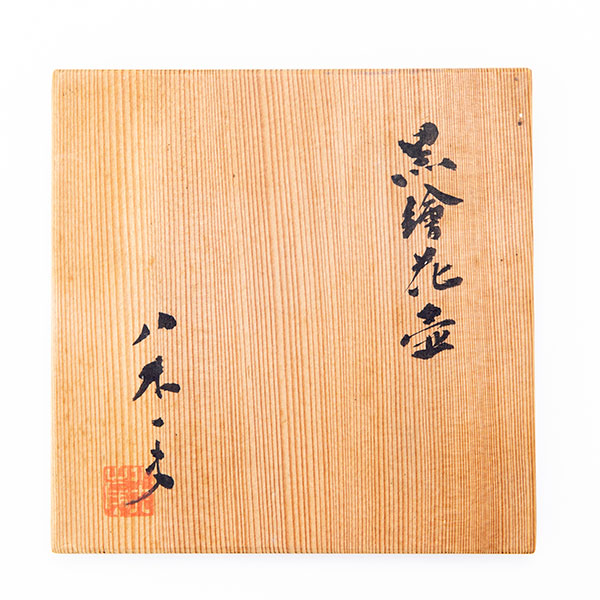 黒繪花壺
八木一夫